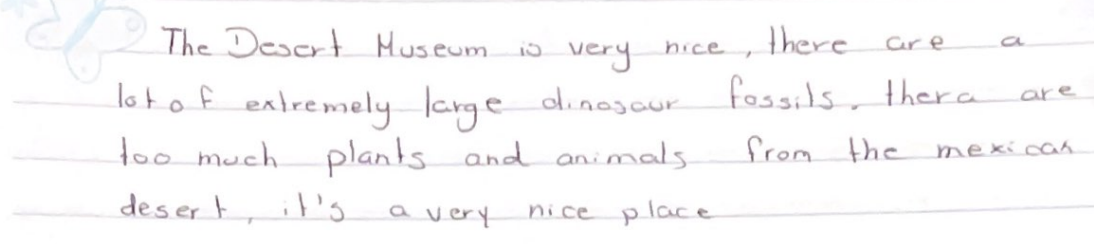 The Desert Museum is very nice, there are a
lot of extremely large dinosaur fossils. thera are
too much plants and animals from the mexican
desert, it's a very nice place